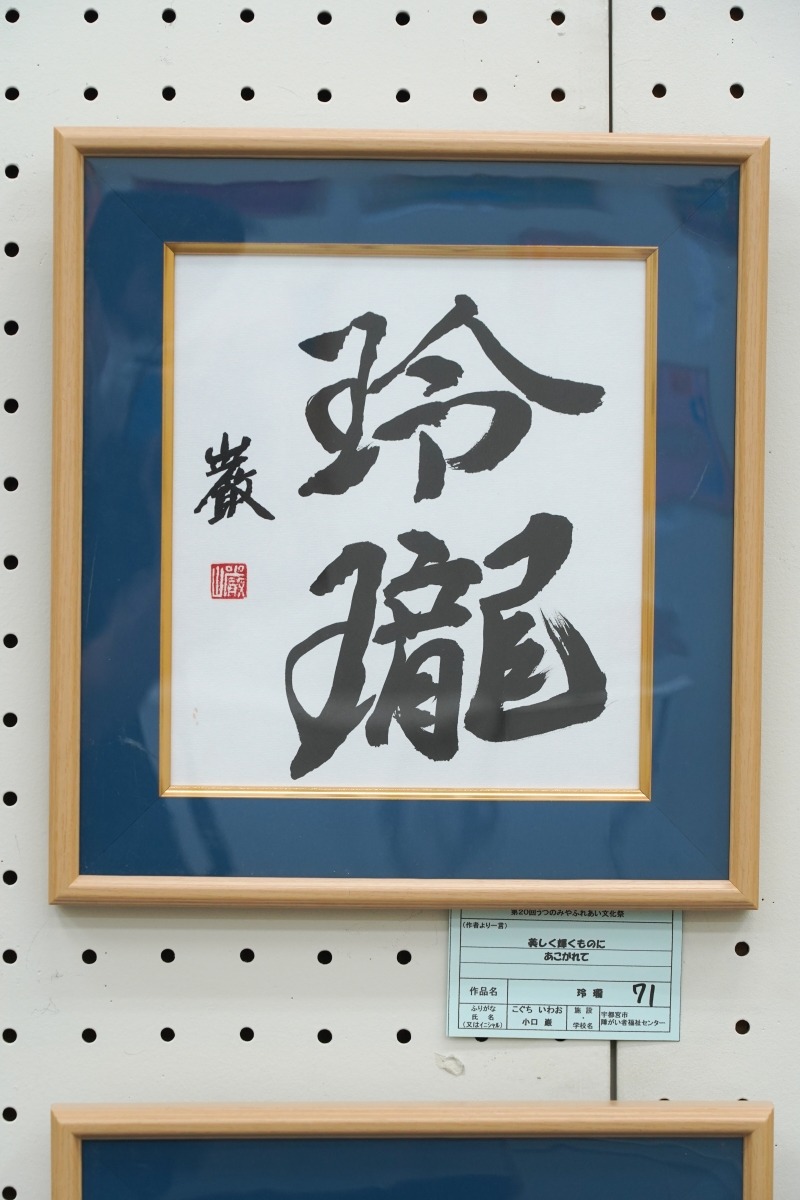 玲瓏
巌
第20回うつのみやふれあい文化祭
(作者より一言)
美しく輝くものに
あこがれて
作品名 玲瓏 71
ふりがな こぐち いわお
氏名 小口 巌
(又はイニシャル)
施設・学校名 宇都宮市
障がい者福祉センター